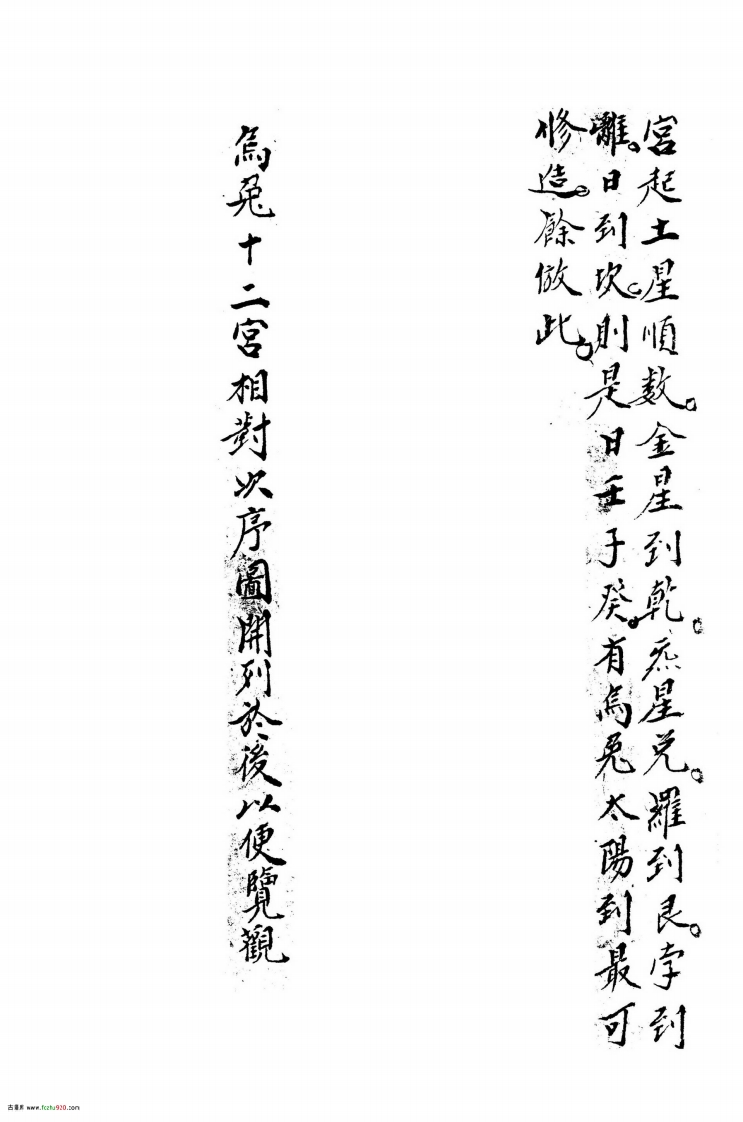 宮起土星順数。金星到乾。炁星兌。羅到艮。孛到
離。日到坎。則是日壬子癸。有烏兔太陽到最可
修造。餘倣此。
烏兔十二宮相對次序圖開列於後以便覽觀
古籍库 www.fcztu920.com